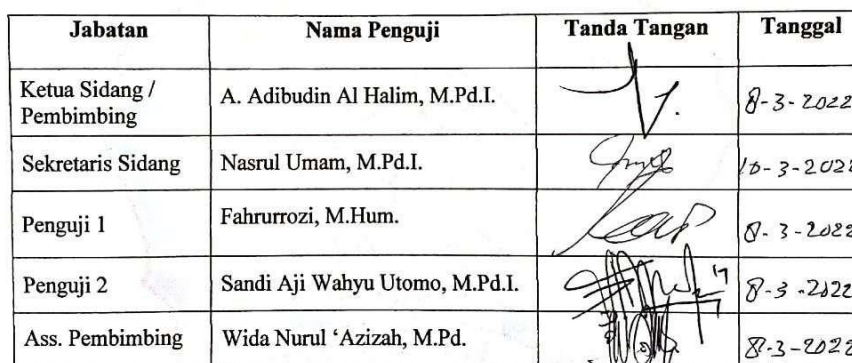 Jabatan Nama Penguji Tanda Tangan Tanggal
Ketua Sidang /
Pembimbing A. Adibudin Al Halim, M.Pd.I. 8-3-2022
Sekretaris Sidang Nasrul Umam, M.Pd.I. 10-3-2022
Penguji 1 Fahrurrozi, M.Hum. 8-3-2022
Penguji 2 Sandi Aji Wahyu Utomo, M.Pd.I. 8-3-2022
Ass. Pembimbing Wida Nurul ‘Azizah, M.Pd. 8-3-2022